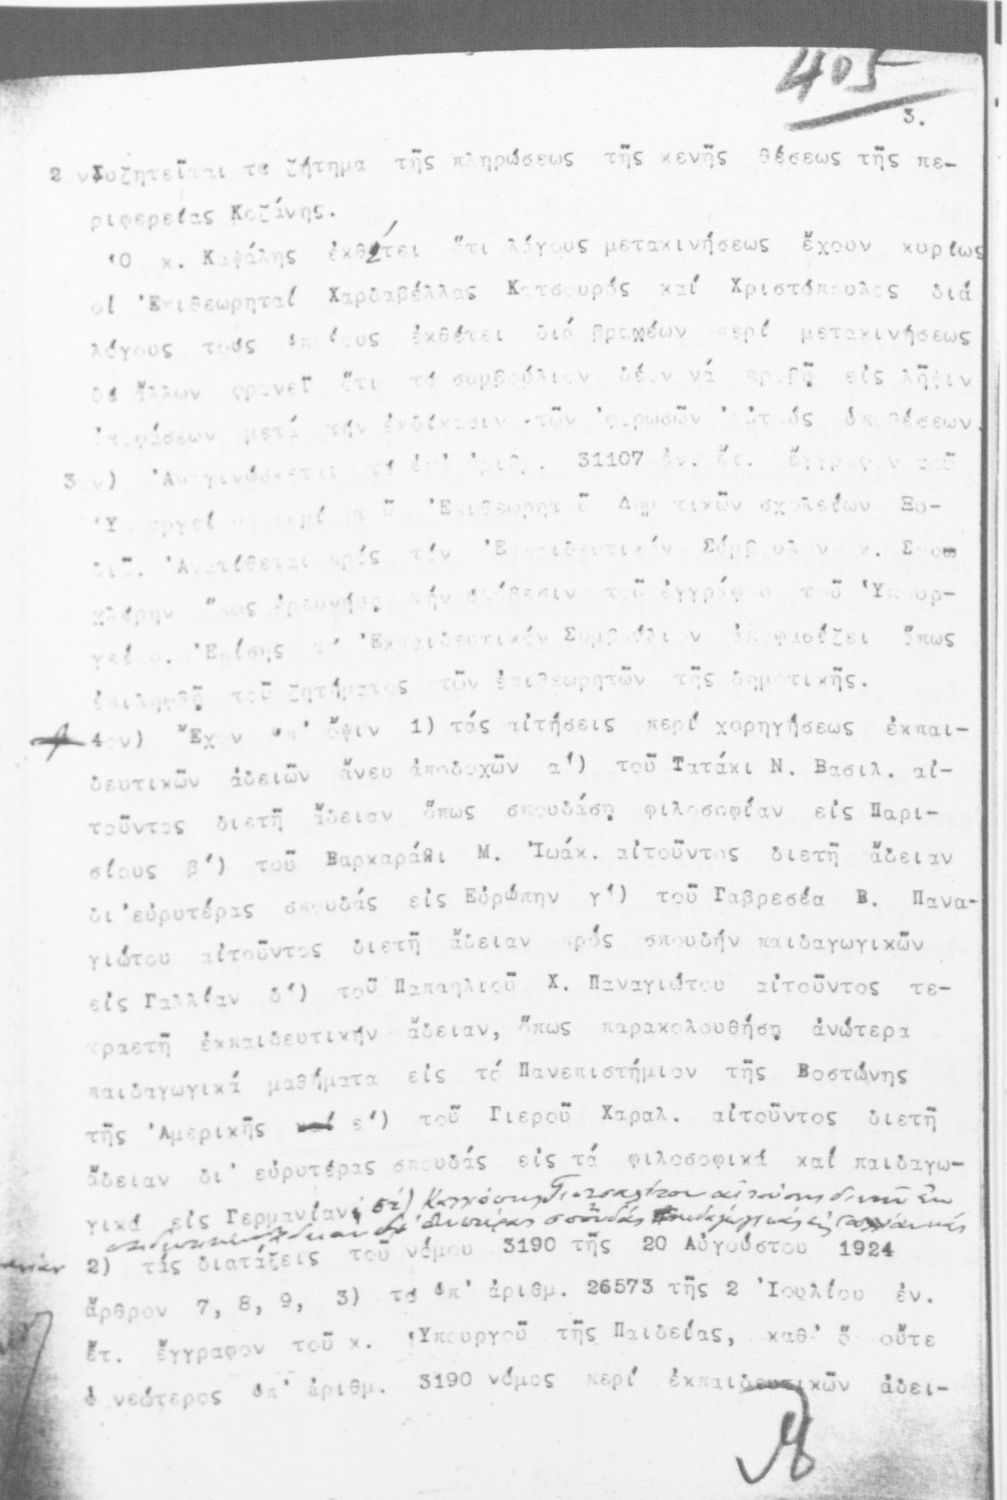 405
3.
2ον Συζητεῖται τό ζήτημα τῆς πληρώσεως τῆς κενῆς θέσεως τῆς πε-
ριφερείας Κοζάνης.
Ὁ κ. Καψάλης ἐκθέτει ὅτι λόγους μετακινήσεως ἔχουν κυρίως
οἱ Ἐπιθεωρηταί Χαρδαβέλλας Κατσουρός καί Χριστόπουλος διά
λόγους τούς ὁποίους ἐκθέτει διά βραχέων περί μετακινήσεως
δέ ἄλλων φρονεῖ ὅτι τό συμβούλιον δέον νά προβῇ εἰς λῆψιν
ἀποφάσεων μετά τήν ἐκδίκασιν τῶν ἀφορωσῶν αὐτούς ὑποθέσεων.
3ον) Ἀναγινώσκεται τό ὑπ' ἀριθμ. 31107 ἐν. ἔτ. ἔγγραφον τοῦ
Ὑπουργείου περί τοῦ Ἐπιθεωρητοῦ Δημοτικῶν σχολείων Ξο-
. Ἀνατίθεται πρός τόν Ἐκπαιδευτικόν Σύμβουλον κ.
ὅπως ἐρευνήσῃ τήν ὑπόθεσιν τοῦ ἐγγράφου τοῦ Ὑπουρ-
γείου. Ἐπίσης τό Ἐκπαιδευτικόν Συμβούλιον ἀποφασίζει ὅπως
ἐπιληφθῇ τοῦ ζητήματος τῶν ἐπιθεωρητῶν τῆς δημοτικῆς.
4ον) Ἔχον ὑπ' ὄψιν 1) τάς αἰτήσεις περί χορηγήσεως ἐκπαι-
δευτικῶν ἀδειῶν ἄνευ ἀποδοχῶν α') τοῦ Τατάκι Ν. Βασιλ. αἰ-
τοῦντος διετῆ ἄδειαν ὅπως σπουδάσῃ φιλοσοφίαν εἰς Παρι-
σίους β') τοῦ Βαρκαράκι Μ. Ἰωάκ. αἰτοῦντος διετῆ ἄδειαν
δι'εὐρυτέρας σπουδάς εἰς Εὐρώπην γ') τοῦ Γαβρεσέα Β. Πανα-
γιώτου αἰτοῦντος διετῆ ἄδειαν πρός σπουδήν παιδαγωγικῶν
εἰς Γαλλίαν δ') τοῦ Παπαηλιοῦ Χ. Παναγιώτου αἰτοῦντος τε-
τραετῆ ἐκπαιδευτικήν ἄδειαν, ὅπως παρακολουθήσῃ ἀνώτερα
παιδαγωγικά μαθήματα εἰς τό Πανεπιστήμιον τῆς Βοστώνης
τῆς Ἀμερικῆς καί ε') τοῦ Γιεροῦ Χαραλ. αἰτοῦντος διετῆ
ἄδειαν δι' εὐρυτέρας σπουδάς εἰς τά φιλοσοφικά καί παιδαγω-
γικά εἰς Γερμανίαν
2) τάς διατάξεις τοῦ νόμου 3190 τῆς 20 Αὐγούστου 1924
ἄρθρον 7, 8, 9, 3) τό ὑπ' ἀριθμ. 26573 τῆς 2 Ἰουλίου ἐν.
ἔτ. ἔγγραφον τοῦ κ. Ὑπουργοῦ τῆς Παιδείας, καθ' ὅ οὔτε
ὁ νεώτερος ὑπ' ἀριθμ. 3190 νόμος περί ἐκπαιδευτικῶν ἀδει-